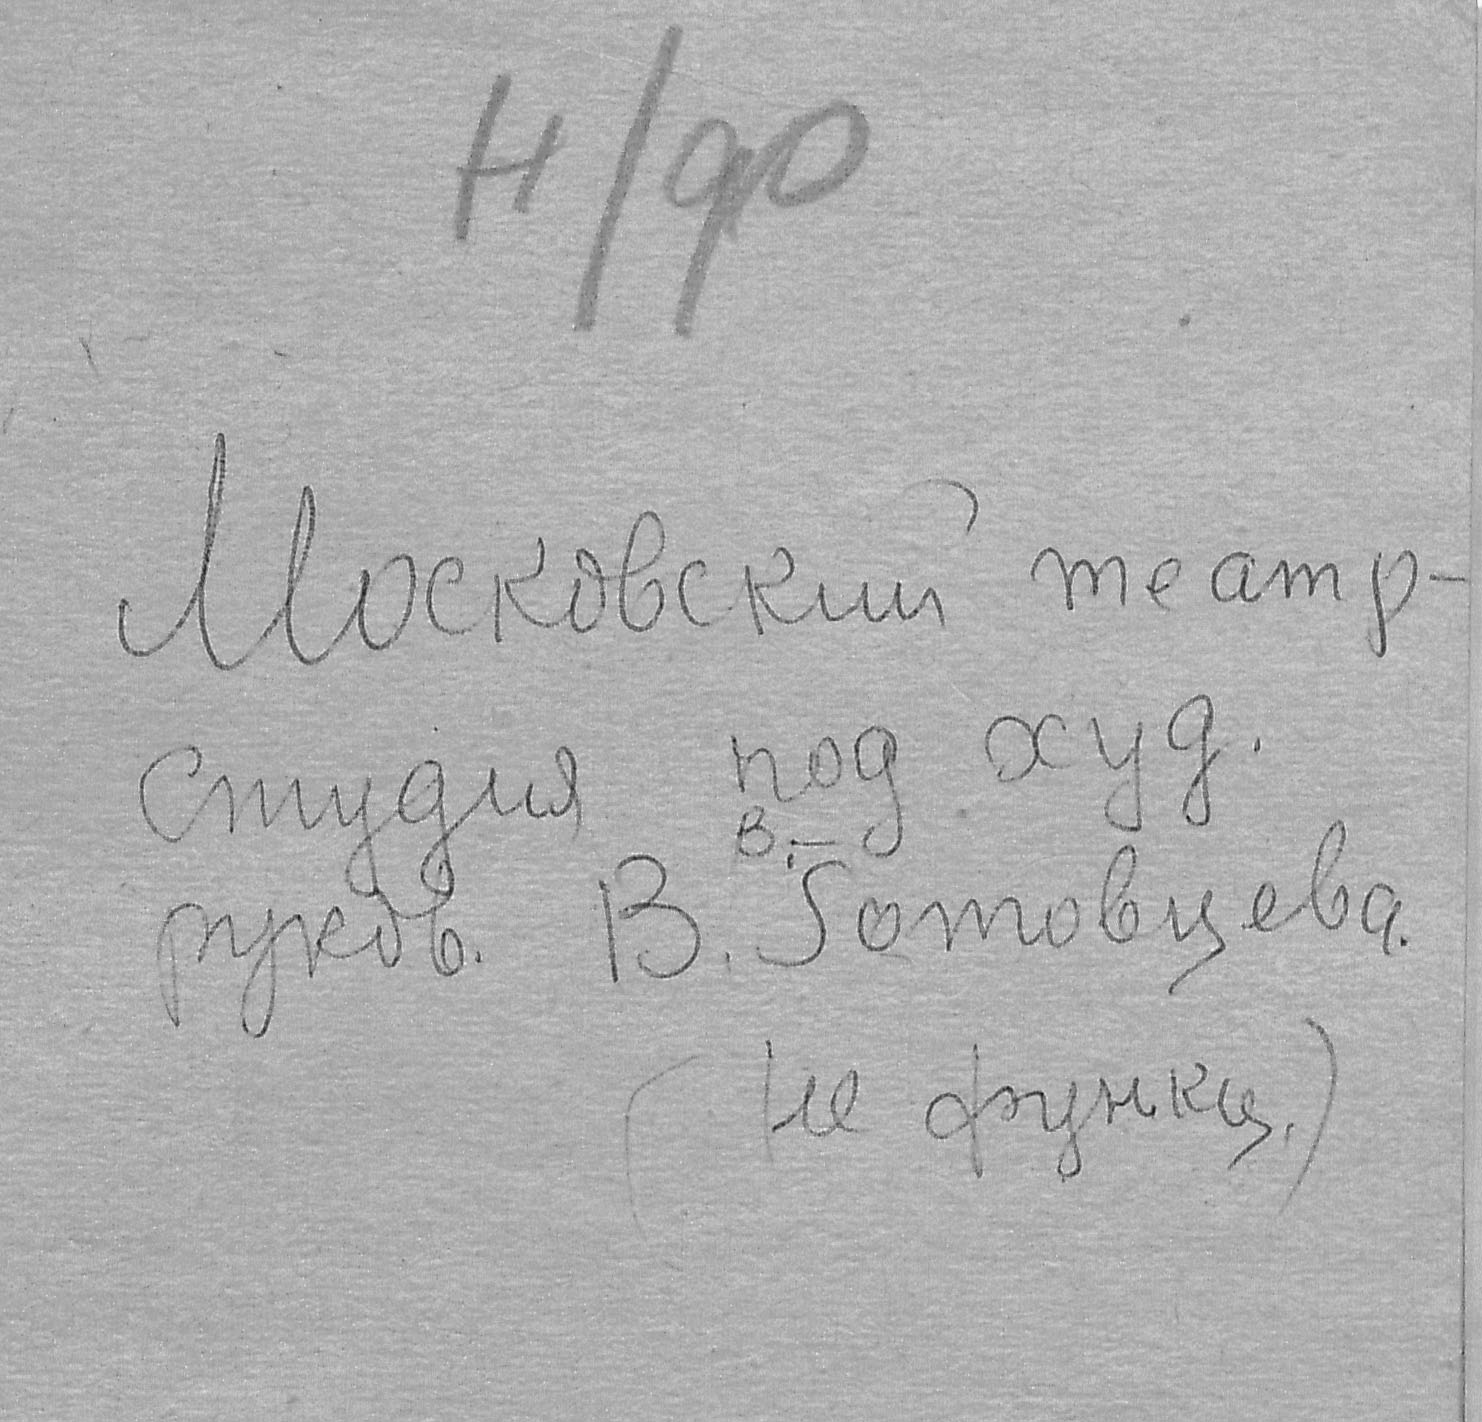 н/ф
Московский театр-
студия под худ.
руков. В. В. Готовцева.
(Не функц.)